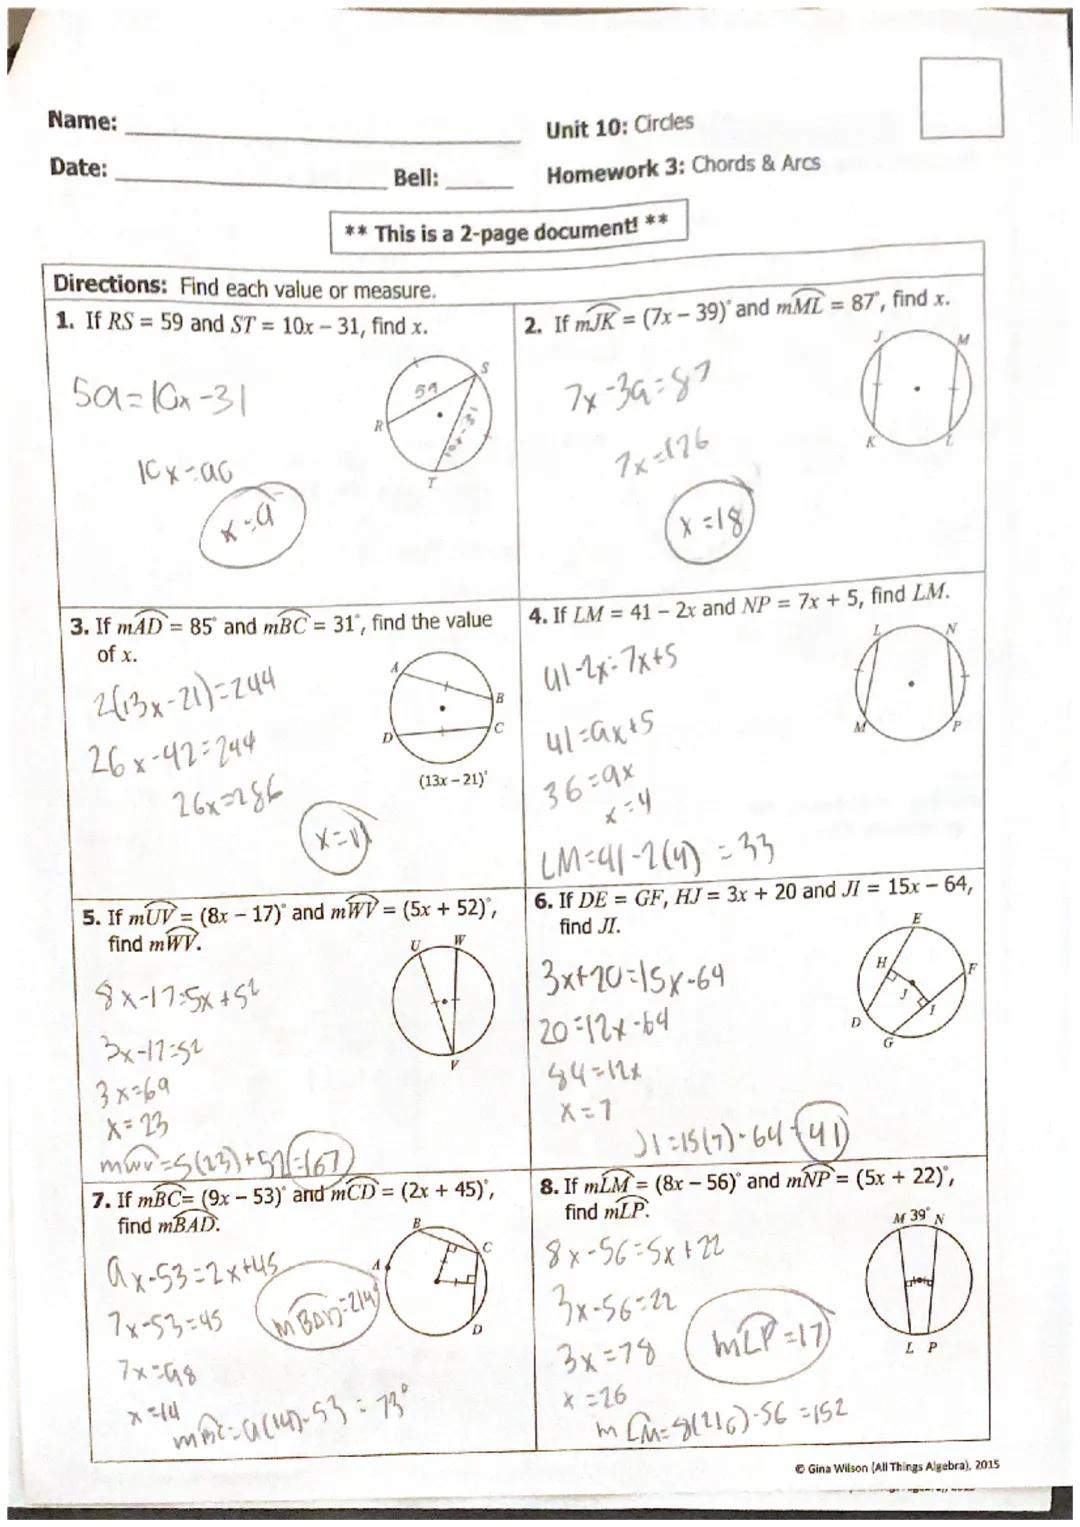 Name:
Unit 10: Circles
Date:
Bell:
Homework 3: Chords & Arcs
** This is a 2-page document! **
Directions: Find each value or measure.
1. If RS = 59 and ST = 10x – 31, find x.
59=10x-31
10x=90
x=9
S
59
R
10x-31
T
2. If mJK = (7x – 39)° and mML = 87°, find x.
7x-39=87
7x=126
x=18
J
M
K
L
3. If mAD = 85° and mBC = 31°, find the value
of x.
2(13x-21)=244
26x-42=244
26x=286
x=11
A
B
D
C
(13x – 21)°
4. If LM = 41 – 2x and NP = 7x + 5, find LM.
41-2x=7x+5
41=9x+5
36=9x
x=4
LM=41-2(4) =33
L
N
M
P
5. If mUV = (8x – 17)° and mWV = (5x + 52)°,
find mWV.
8x-17=5x+52
3x-17=52
3x=69
x=23
mWV=5(23)+52=167
U
W
V
6. If DE = GF, HJ = 3x + 20 and JI = 15x – 64,
find JI.
3x+20=15x-64
20=12x-64
84=12x
x=7
JI=15(7)-64=41
E
H
F
J
I
D
G
7. If mBC= (9x – 53)° and mCD = (2x + 45)°,
find mBAD.
9x-53=2x+45
7x-53=45
7x=98
x=14
mBC=9(14)-53=73°
mBAD=214°
B
C
A
D
8. If mLM = (8x – 56)° and mNP = (5x + 22)°,
find mLP.
8x-56=5x+22
3x-56=22
3x=78
x=26
mLM=8(26)-56=152
mLP=17
M 39° N
L P
© Gina Wilson (All Things Algebra), 2015